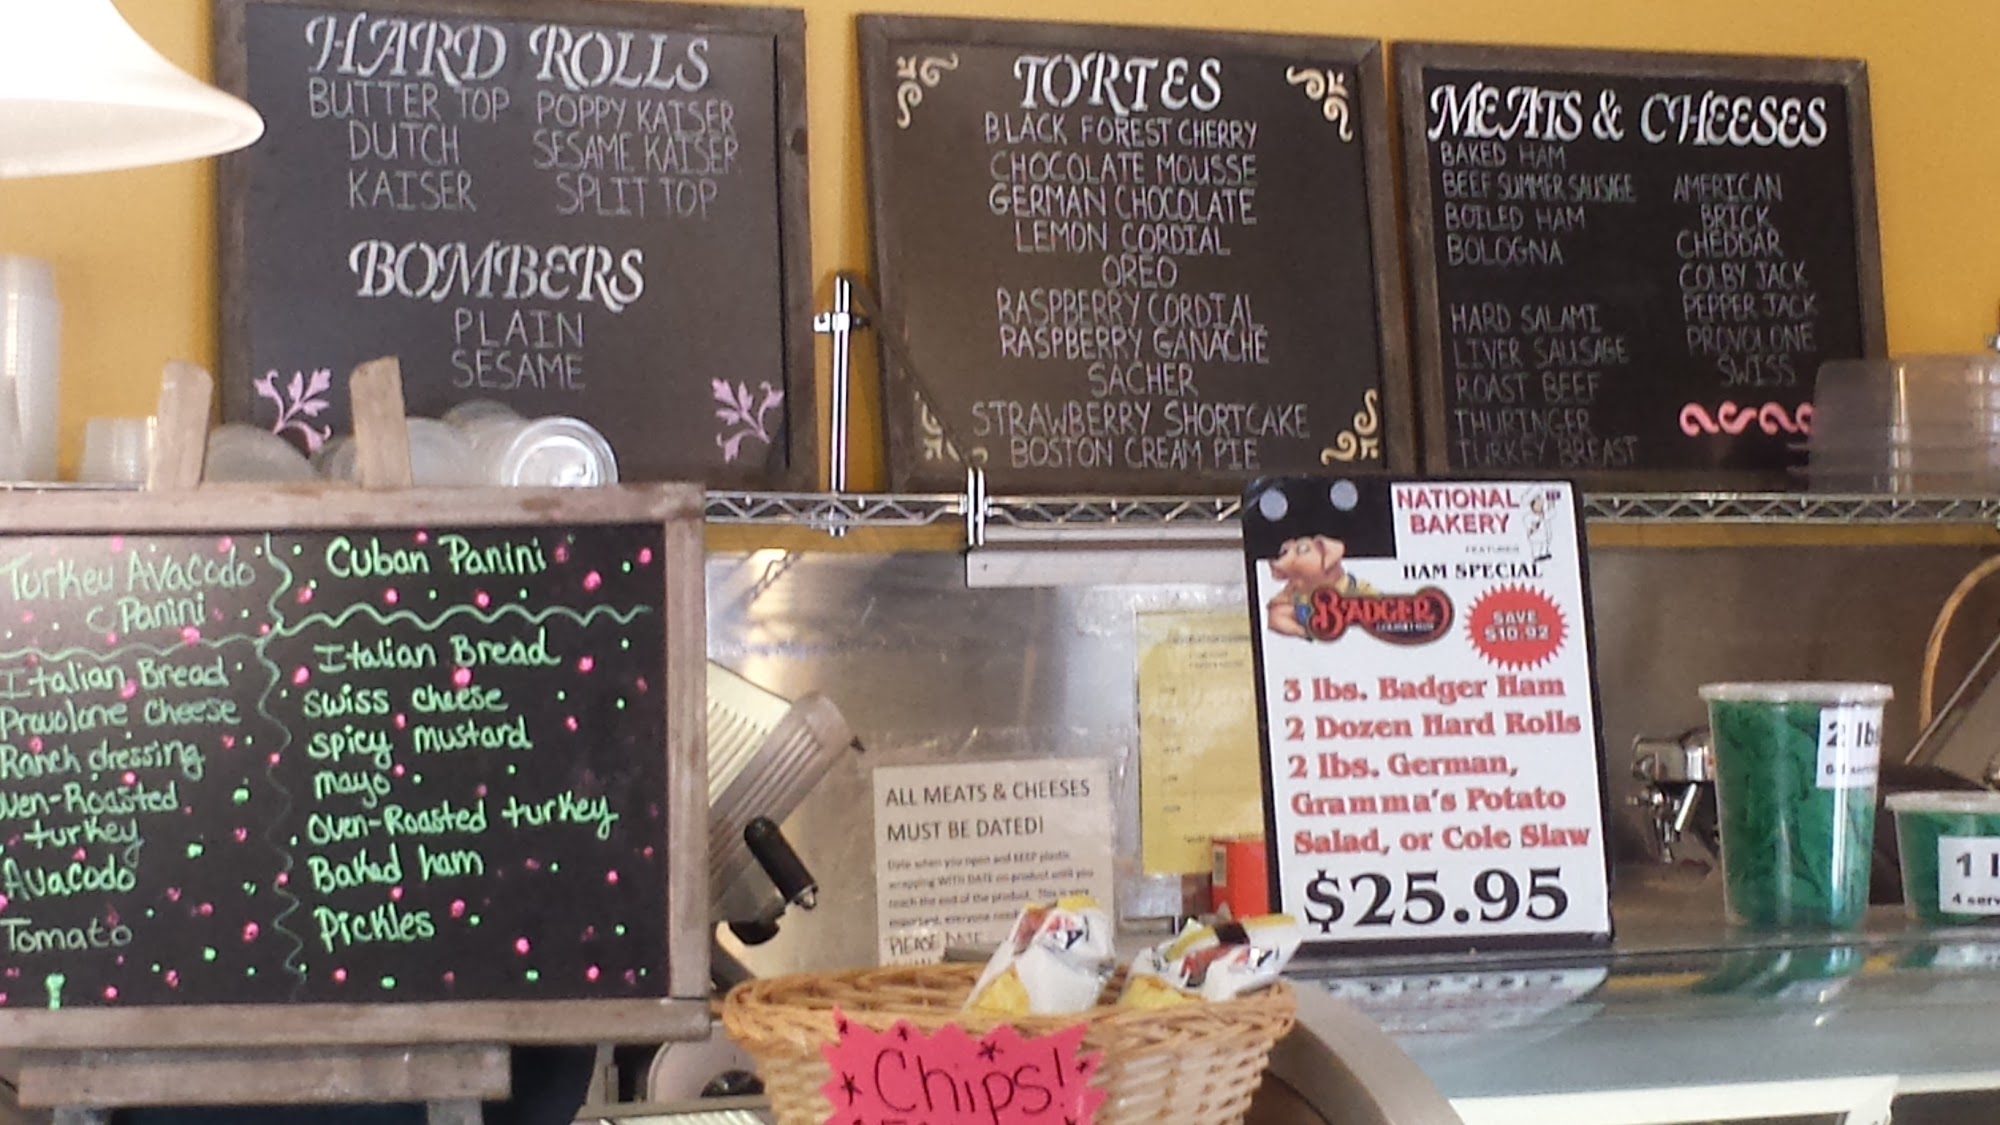 HARD ROLLS
BUTTER TOP
DUTCH
KAISER
POPPY KAISER
SESAME KAISER
SPLIT TOP
BOMBERS
PLAIN
SESAME
TORTES
BLACK FOREST CHERRY
CHOCOLATE MOUSSE
GERMAN CHOCOLATE
LEMON CORDIAL
OREO
RASPBERRY CORDIAL
RASPBERRY GANACHE
SACHER
STRAWBERRY SHORTCAKE
BOSTON CREAM PIE
MEATS & CHEESES
BAKED HAM
BEEF SUMMER SAUSAGE
BOILED HAM
BOLOGNA
HARD SALAMI
LIVER SAUSAGE
ROAST BEEF
THURINGER
TURKEY BREAST
AMERICAN
BRICK
CHEDDAR
COLBY JACK
PEPPER JACK
PROVOLONE
SWISS
Turkey Avacodo
Panini
Italian Bread
Provolone Cheese
Ranch dressing
Oven-Roasted
turkey
Avacodo
Tomato
Cuban Panini
Italian Bread
Swiss cheese
spicy mustard
mayo
Oven-Roasted turkey
Baked ham
Pickles
ALL MEATS & CHEESES
MUST BE DATED!
Date when you open and KEEP plastic
wrapping WITH DATE on product until you
reach the end of the product. This is very
important, everyone
PLEASE DATE
NATIONAL
BAKERY
FEATURES
HAM SPECIAL
BADGER
SAVE
$10.92
3 lbs. Badger Ham
2 Dozen Hard Rolls
2 lbs. German,
Gramma's Potato
Salad, or Cole Slaw
$25.95
2 lb
1 l
4 serv
Chips!